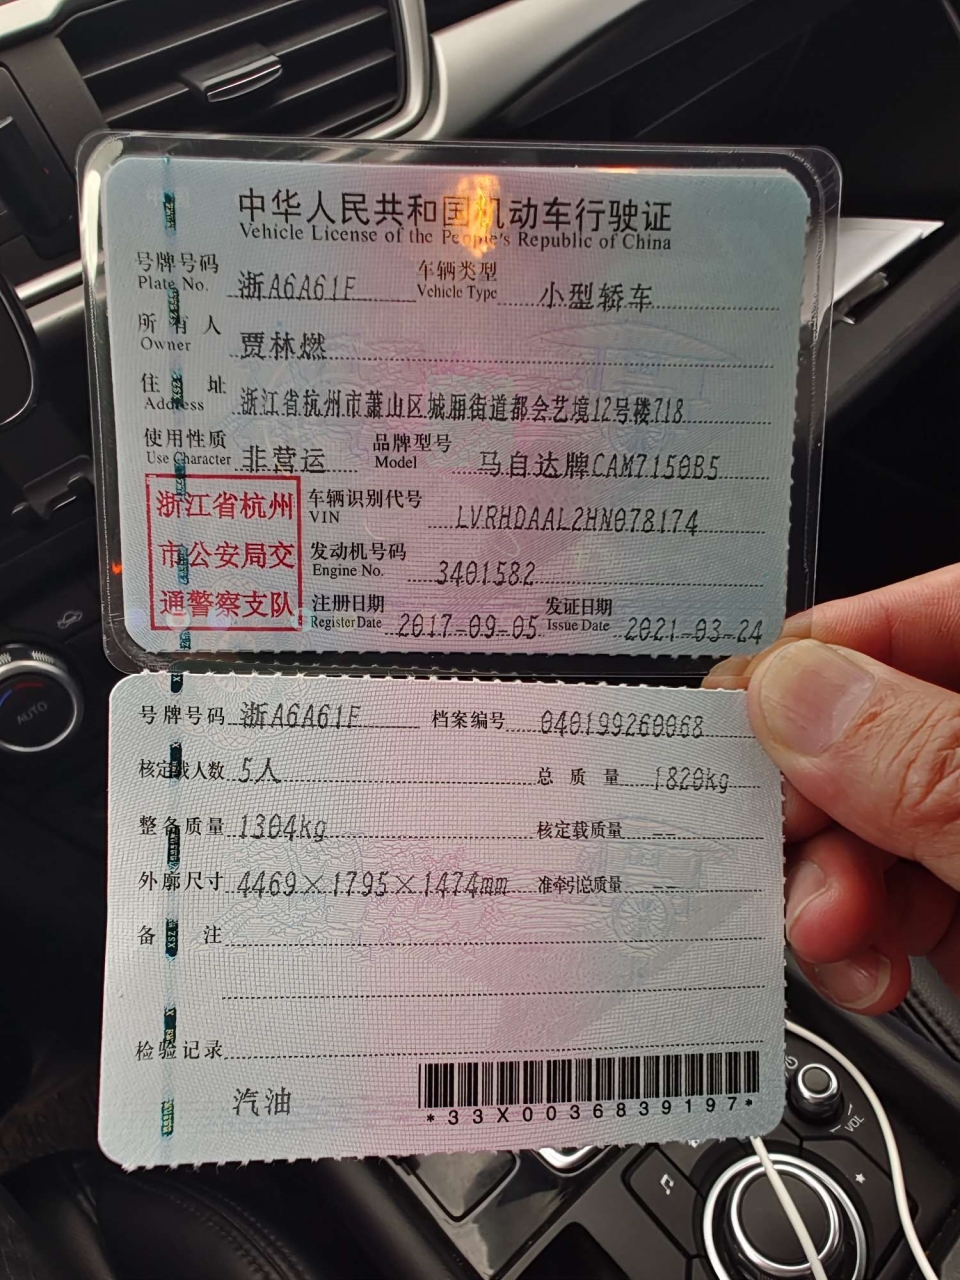 中华人民共和国机动车行驶证
Vehicle License of the People's Republic of China
号牌号码 浙A6A61F 车辆类型 小型轿车
Plate No. Vehicle Type
所有人 贾林燃
Owner
住址 浙江省杭州市萧山区城厢街道都会艺境12号楼718
Address
使用性质 非营运 品牌型号 马自达牌CAM7150B5
Use Character Model
浙江省杭州
市公安局交
通警察支队
车辆识别代号 LVRHDAAL2HN078174
VIN
发动机号码 3401582
Engine No.
注册日期 2017-09-05 发证日期 2021-03-24
Register Date Issue Date
号牌号码 浙A6A61F 档案编号 040199260068
核定载人数 5人 总质量 1820kg
整备质量 1304kg 核定载质量 --
外廓尺寸 4469×1795×1474mm 准牵引总质量 --
备注
检验记录
汽油
*33X0036839197*
AUTO
VOL